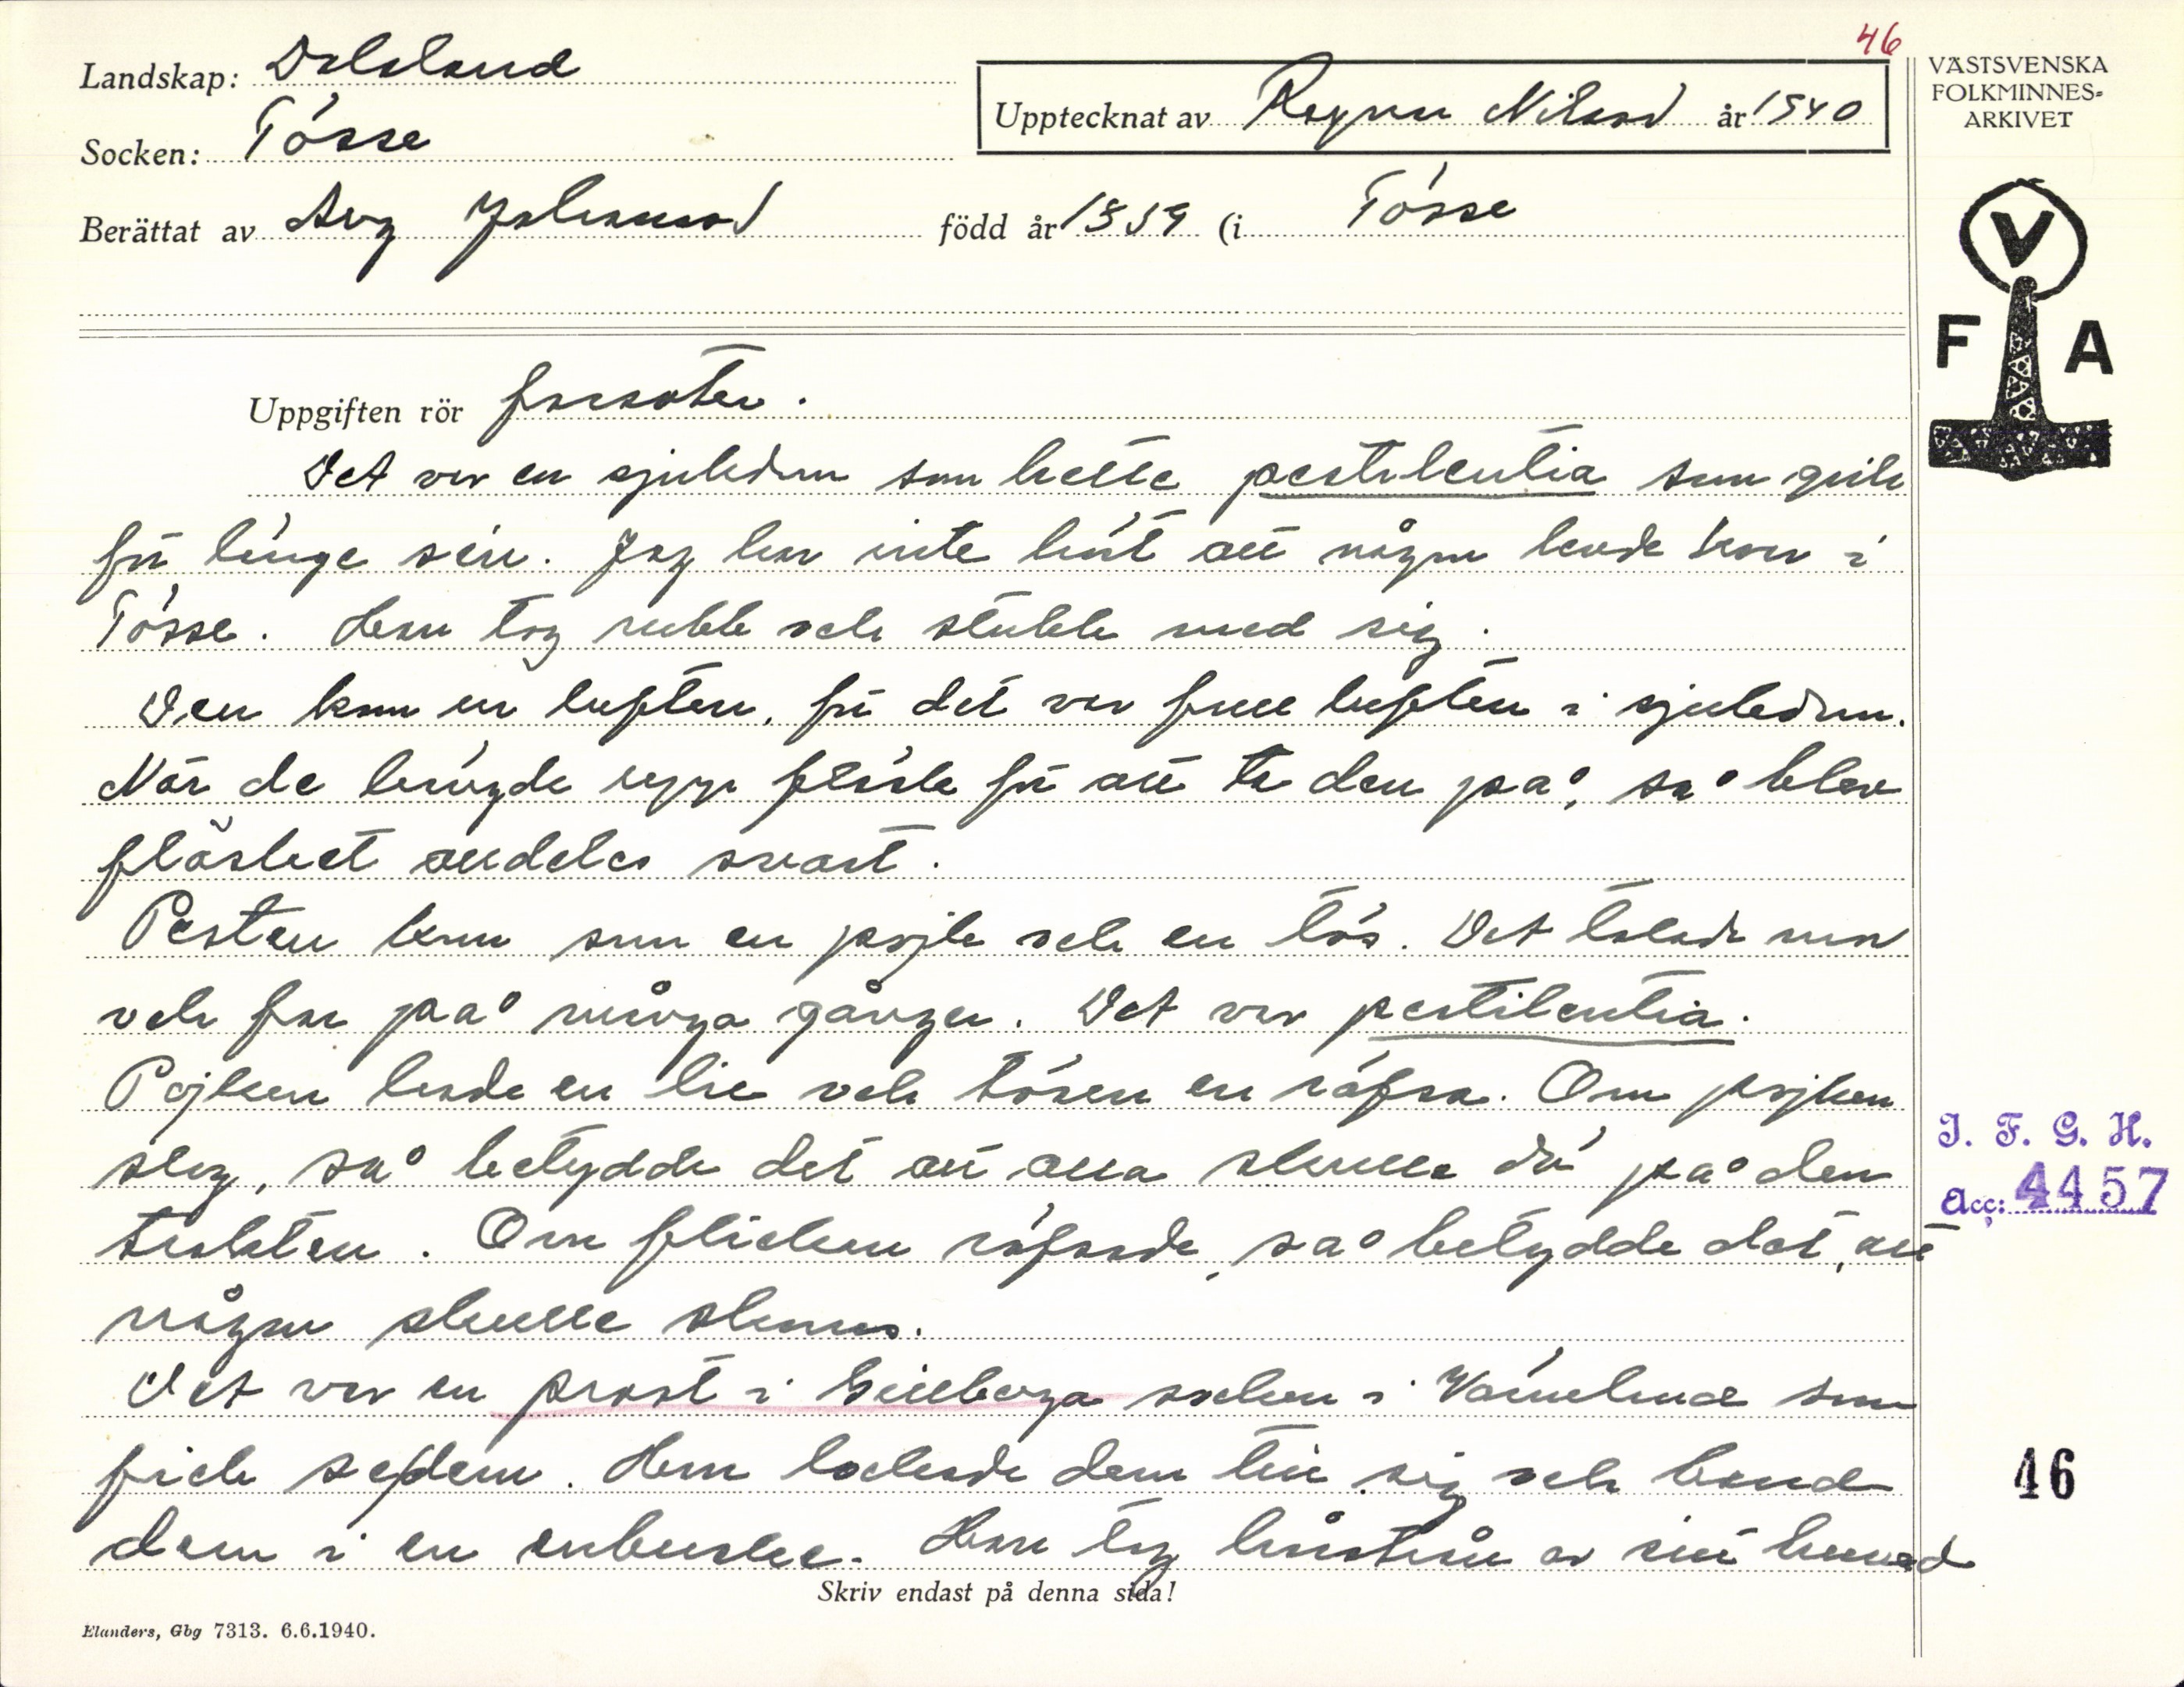 46
Landskap: Dalsland
Socken: Tösse
Upptecknat av Ragnar Nilsson år 1940
Berättat av Aug Johansson född år 1859 (i Tösse
VÄSTSVENSKA
FOLKMINNES=
ARKIVET
V
F A
Uppgiften rör farsoter.
Det var en sjukdom som hette pestilentia som gick
för länge sen. Jag har inte hört att någon levde kvar i
Tösse. Han tog rubb och stubb med sig.
Den kom ur luften, för det var full luften i sjukdom.
När de hängde upp fläsk för att ta den på, så blev
fläsket alldeles svart.
Pesten kom som en pojk och en tös. Det talade mor
och far på många gånger. Det var pestilentia.
Pojken hade en lie och tösen en räfsa. Om pojken
slog, så betydde det att alla skulle dö på den
trakten. Om flickan räfsade, så betydde det, att
någon skulle skonas.
Det var en prost i Gillberga socken i Värmland som
fick se dem. Han lockade dem till sig och band
dem i en enbuske. Han tog hårstrån av sitt huvud
I. F. G. H.
Acc: 4457
46
Skriv endast på denna sida!
Elanders, Gbg 7313. 6.6.1940.